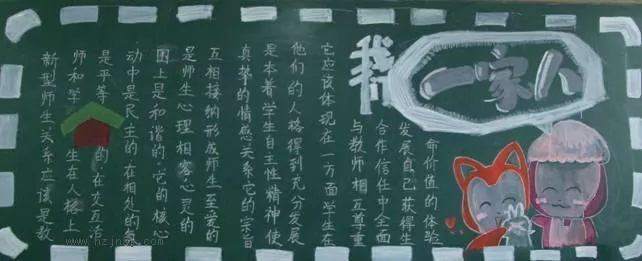 我们
一家人
新型师生关系应该是教
师和学生在人格上
是平等的·在交互活
动中是民主的·在相处的氛
围上是和谐的·它的核心
是师生心理相容心灵的
互相接纳形成师生至爱的
真挚的情感关系它的宗旨
是本着学生自主性精神使
他们的人格得到充分发展
它应该体现在一方面学生在
与教师相互尊重
合作信任中全面
发展自己获得生
命价值的体验